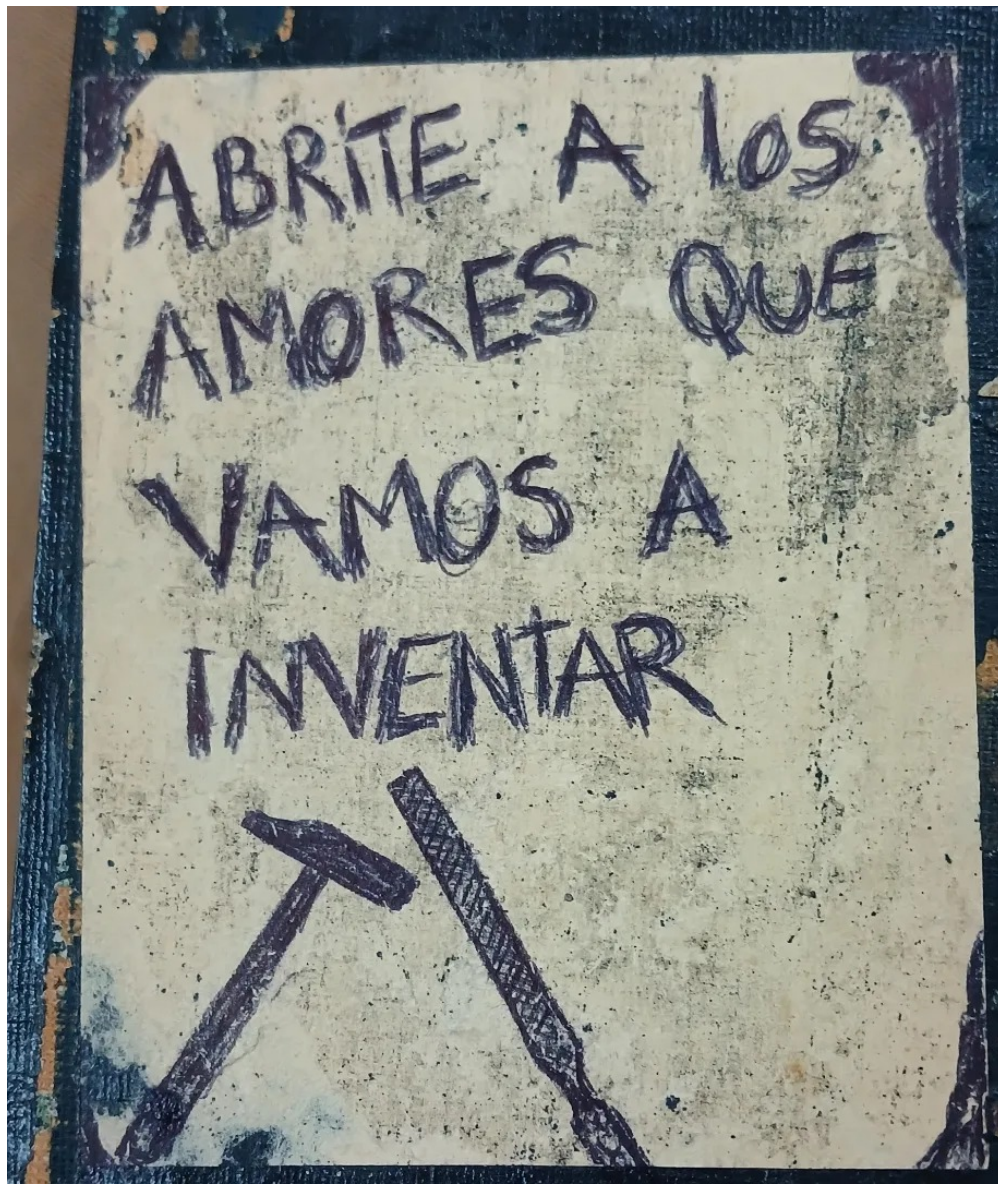 ABRITE A los
AMORES QUE
VAMOS A
INVENTAR